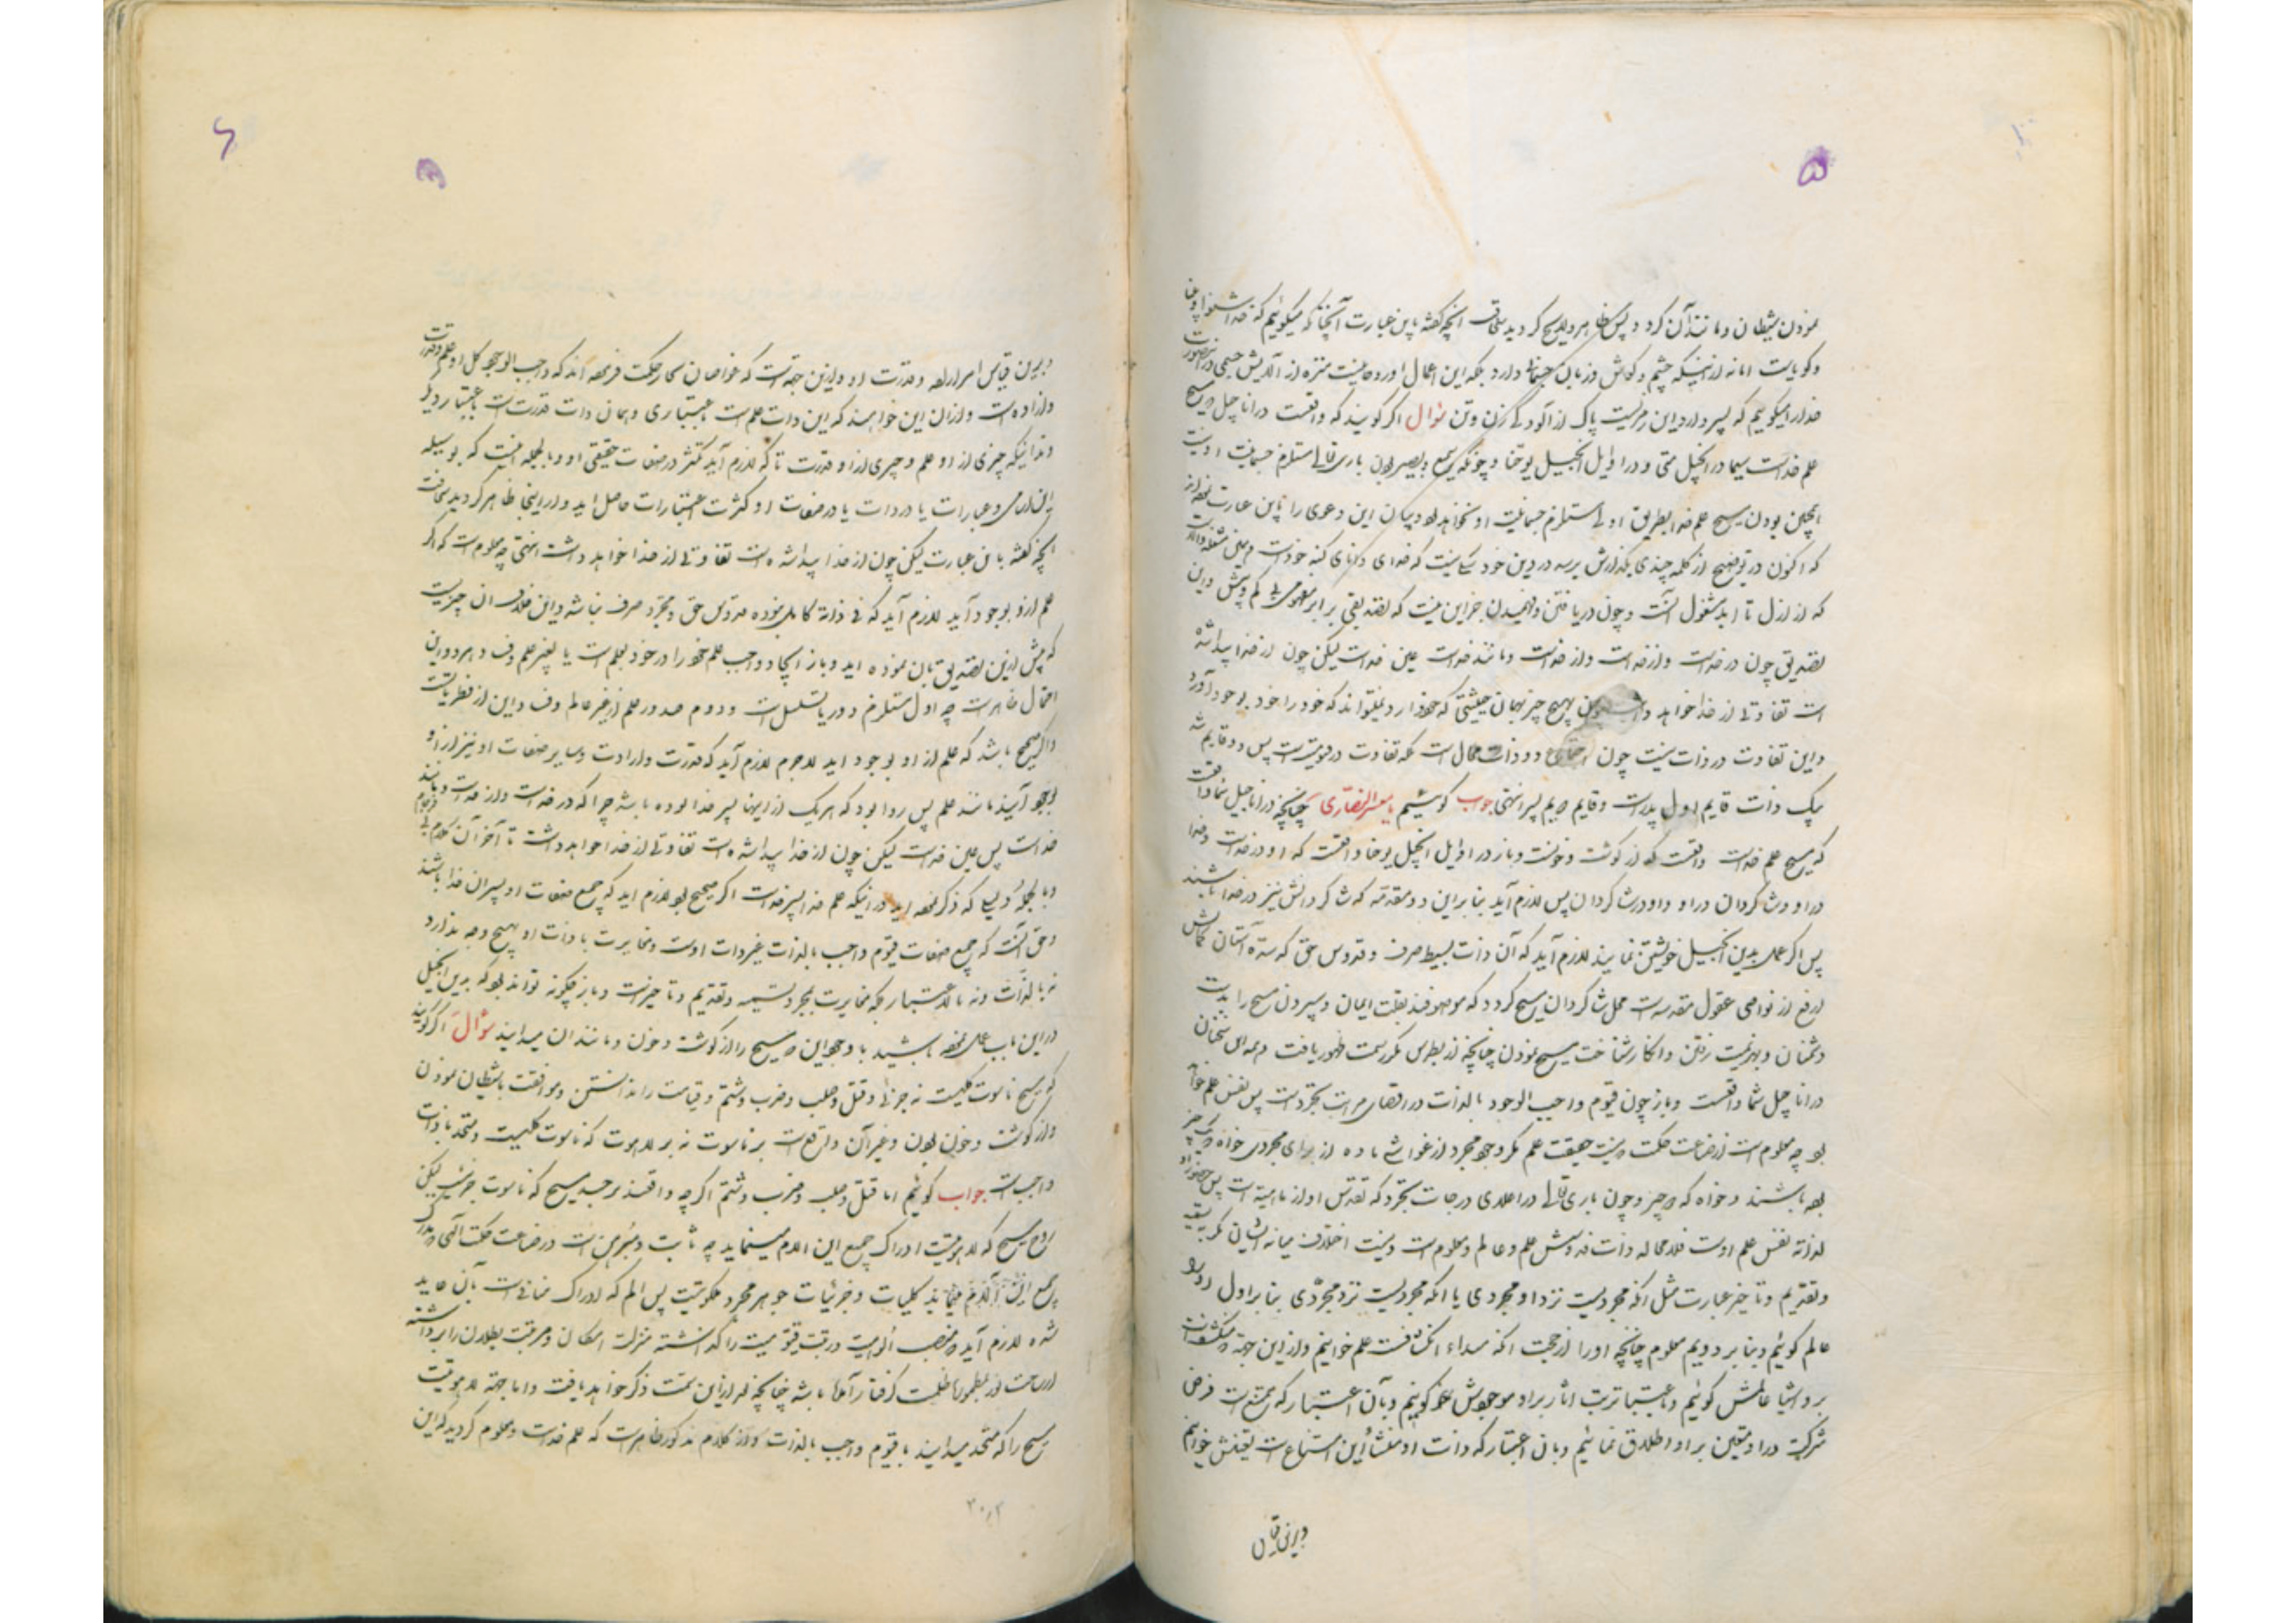 ۵
نمودن شیطان و مانند آن کرد و پس ظاهر و لایح کردید سخافت آنچه گفته باین عبارت آنچنانکه میگوئیم که خدا شنوا و بینا
و گویاست اما نه از اینکه چشم و گوش و زبان جسمانی دارد بلکه این اعمال او روحانیست منزه از آلایش جسمی در این صورت
خدا را میگوئیم که پسر دارد و این رمزیست پاک از آلودگی زن و تن سؤال اگر گویند که واقعست در اناجیل که مسیح
علم خداست سیما در انجیل متی و در اوایل انجیل یوحنا و چونکه سمیع و بصیر بودن باری تعالی مستلزم جسمانیت او نیست
همچنین بودن مسیح علم خدا بطریق اولی مستلزم جسمانیت او نخواهد بود و بیان این دعوی را باین عبارت نموده اند
که اکنون در توضیح از کلمه چندی بگذارش برسد در دین خود شکی نیست که خدای دانای کنه خودست و باین مشغله دانا
که از ازل تا ابد مشغول آنست و چون دریافتن و فهمیدن جز این نیست که تصدیقی برابر معلوم بی کم و بیش و این
تصدیق چون در خداست و از خداست و مانند خداست عین خداست لیکن چون از خدا پیدا شده
است تفاوتی از خدا خواهد داشت چون هیچ چیز بهمان حیثیتی که خود دارد نمیتواند که خود را خود بوجود آورد
و این تفاوت در ذات نیست چون اجتماع دو ذات محالست بلکه تفاوت در قنومیتست پس دو قایم شد
بیک ذات قایم اول پدرست و قایم دویم پسر انتهی جواب گوئیم یا معشر النصاری چنانچه در اناجیل شما واقعست
که مسیح علم خداست واقعست که از گوشت و خونست و باز در اوایل انجیل یوحنا واقعست که او در خداست و خدا
در او و شاگردان در او و او در شاگردان پس لازم آید بنابر این دو مقدمه که شاگردانش نیز در خدا باشند
پس اگر عمل بدین انجیل خویشتن نمایند لازم آید که آن ذات بسیط صرف و قدوس حق که سده آستان کمالش
ارفع از نواصی عقول مقدسه است محل شاگردان مسیح گردد که موصوفند بقلت ایمان و سپردن مسیح را بدست
دشمنان و بهزیمت رفتن و انکار شناخت مسیح نمودن چنانچه از بطرس مکرر سمت ظهور یافت و همه این سخنان
در اناجیل شما واقعست و باز چون قیوم واجب الوجود بالذات در اقصای مراتب تجردست پس نفس علم خواهد
بود چه معلومست از صناعت حکمت که نیست حقیقت علم مگر وجود مجرد از غواشی ماده از برای مجردی خواه یک چیز
بوده باشند و خواه دو چیز و چون باری تعالی در اعلای درجات تجرد که تقدس او از ماهیتست پس حضور او
لذاته نفس علم اوست فلا محاله ذات قدوسش علم و عالم و معلومست و نیست اختلاف میانه ایشان مگر بتسمیه
و تقدیم و تاخیر عبارت مثل آنکه مجردیست نزد او مجردی یا آنکه مجردیست نزد مجردی بنابر اول او را
عالم گوئیم و بنابر دویم معلوم چنانچه او را از جهت آنکه مبداء انکشافست علم خوانیم و از این جهة که منکشفست
بر او اشیا عالمش گوئیم و باعتبار ترتب آثار بر او موجودش گوئیم و بآن اعتبار که ممتنع است فرض
شرکت در او متعین بر او اطلاق نمائیم و بآن اعتبار که ذات او منشأ این امتناعست تعینش خوانیم
و برین قیاس
۶
و برین قیاس امر اراده و قدرت او و ازین جهتست که غواصان بحار حکمت فرموده اند که واجب الوجود کل او علم و قدرت
و اراده است و از آن این خواهند که این ذات علم است باعتباری و همان ذات قدرت است باعتبار دیگر
و نه اینکه چیزی از او علم و چیزی از او قدرت تا که لازم آید تکثر در صفات حقیقی او و بالجمله نیست که بوسیله
این اسامی و عبارات یا در ذات یا در صفات او کثرت اعتبارات حاصل آید و از اینجا ظاهر گردید سخافت
آنچه گفته باین عبارت لیکن چون از خدا پیدا شده است تفاوتی از خدا خواهد داشت انتهی چه معلومست که اگر
علم ازو بوجود آید لازم آید که فی ذاته کامل نبوده قدوس حق و مجرد صرف نباشد و این خلاف آن چیزیست
که پیش ازین تصدیق بآن نموده اید و باز ایجاد واجب علم خود را در خود بعلم است یا بغیر علم وف و هر دو این
احتمال ظاهرست چه اول مستلزم دور یا تسلسل است و دوم صدور علم از غیر عالم وف و این از فطریاتست
و اگر صحیح باشد که علم از او بوجود آید لاجرم لازم آید که قدرت و ارادت و سایر صفات او نیز از او
بوجود آیند مانند علم پس روا بود که هر یک از اینها پسر خدا بوده باشد چرا که در خداست و از خداست و مانند
خداست پس عین خداست لیکن چون از خدا پیدا شده است تفاوتی از خدا خواهد داشت تا آخر آن کلام بی فرجام
و بالجمله دلیلی که ذکر نموده اید در اینکه علم خدا پسر خداست اگر صحیح بود لازم آید که جمیع صفات او پسران خدا باشند
و حق آنست که جمیع صفات قیوم واجب بالذات عین ذات اوست و مغایرت با ذات او بهیچ وجه ندارد
نه بالذات و نه بالاعتبار بلکه مغایرت بمجرد تسمیه و تقدیم و تاخیرست و باز چگونه تواند بود که بدین انجیل
در این باب عمل نموده باشید با وجود این که مسیح را از گوشت و خون و مانند آن میدانید سؤال اگر گویند
که مسیح ناسوت کلیست نه جزئی و قتل و صلب و ضرب و شتم و قیامت را ندانستن و موافقت با شیطان نمودن
و از گوشت و خون بودن و غیر آن واقعست بر ناسوت نه بر لاهوت که ناسوت کلیست و متحد با ذات
واجبست جواب گوئیم اما قتل و صلب و ضرب و شتم اگرچه واقعند بر جسد مسیح که ناسوت جزئیست لیکن
روح مسیح که لاهوتیست ادراک جمیع این آلام مینماید چه ثابت و مبرهن است در صناعت حکمت الهی که مدرک
جمیع این آلام بلکه کلیات و جزئیات جوهر مجرد ملکوتیست پس الم که ادراک منافیست بآن عاید
شده لازم آید که منصب الوهیت و رتبت قیومیت را گذاشته منزلت امکان و مرتبت بطلان را برداشته
از ساحت نور بمطموره ظلمت گرفتار آمده باشد چنانچه بعد ازین سمت ذکر خواهد یافت و اما جهة لاهوتیت
مسیح را که متحد میدانید با قیوم واجب بالذات و از کلام مذکور ظاهرست که علم خداست و معلوم گردید که این